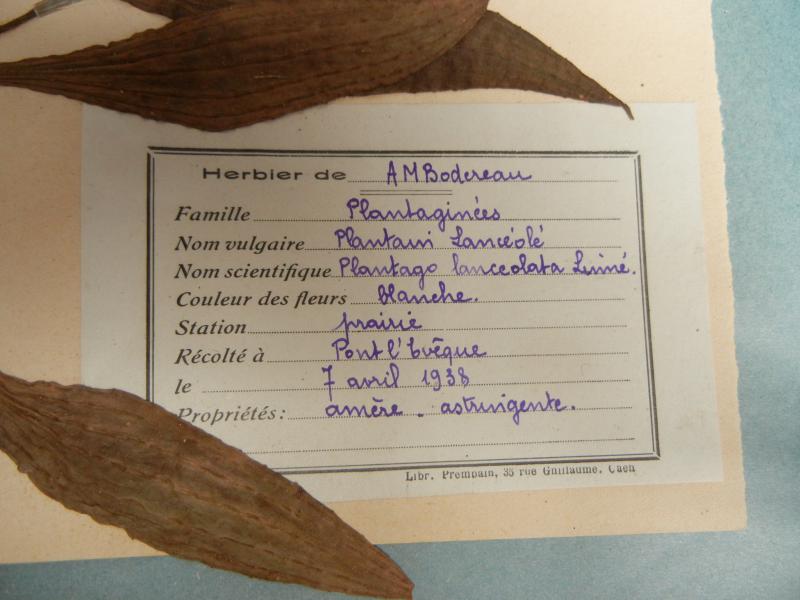 Herbier de A M Bodereau
Famille Plantaginées
Nom vulgaire Plantain Lancéolé
Nom scientifique Plantago lanceolata Linné.
Couleur des fleurs blanche.
Station prairie
Récolté à Pont l'Evêque
le 7 avril 1938
Propriétés: amère. astringente.
Libr. Prempain, 35 rue Guillaume, Caen